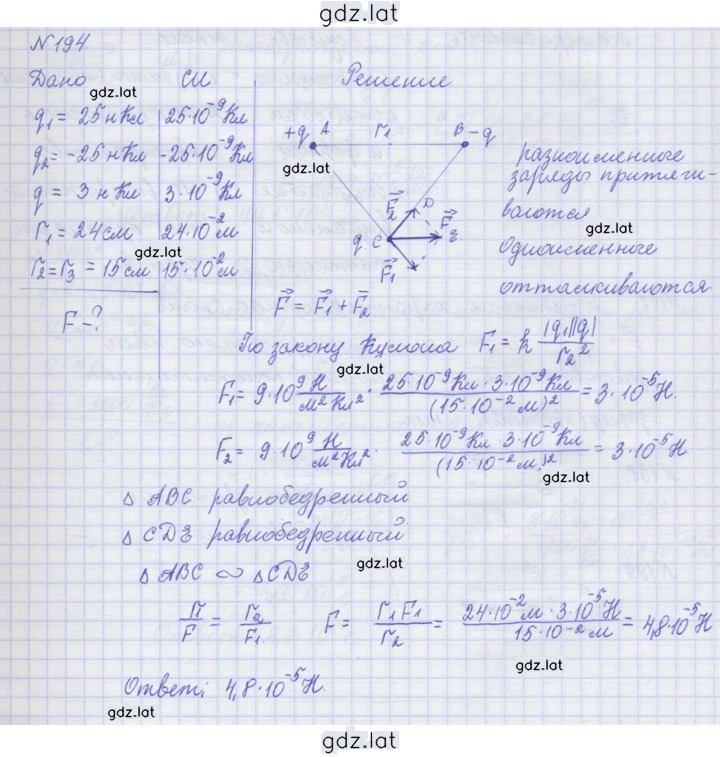 gdz.lat
№194
Дано СИ Решение
gdz.lat
q₁ = 25 нКл 25·10⁻⁹Кл
q₂ = -25 нКл -25·10⁻⁹Кл
q = 3 нКл 3·10⁻⁹Кл
r₁ = 24 см 24·10⁻²м
gdz.lat
r₂=r₃ = 15 см 15·10⁻²м
F-?
+q A r₁ B -q
gdz.lat
F₂ D F
q C E
F₁
разноименные
заряды притяги-
ваются
gdz.lat
Одноименные
отталкиваются
F = F₁ + F₂
По закону Кулона F₁ = k |q₁||q| / r₂²
gdz.lat
F₁ = 9·10⁹ Н / м²Кл² · 25·10⁻⁹Кл · 3·10⁻⁹Кл / (15·10⁻² м)² = 3·10⁻⁵Н.
F₂ = 9·10⁹ Н / м²Кл² · 25·10⁻⁹Кл 3·10⁻⁹Кл / (15·10⁻² м)² = 3·10⁻⁵Н
gdz.lat
Δ ABC равнобедренный
Δ CDE равнобедренный
gdz.lat
Δ ABC ∾ Δ CDE
r₁ / F = r₂ / F₁ F = r₁F₁ / r₂ = 24·10⁻²м · 3·10⁻⁵Н / 15·10⁻² м = 4,8·10⁻⁵Н
gdz.lat
Ответ: 4,8·10⁻⁵Н.
gdz.lat
gdz.lat